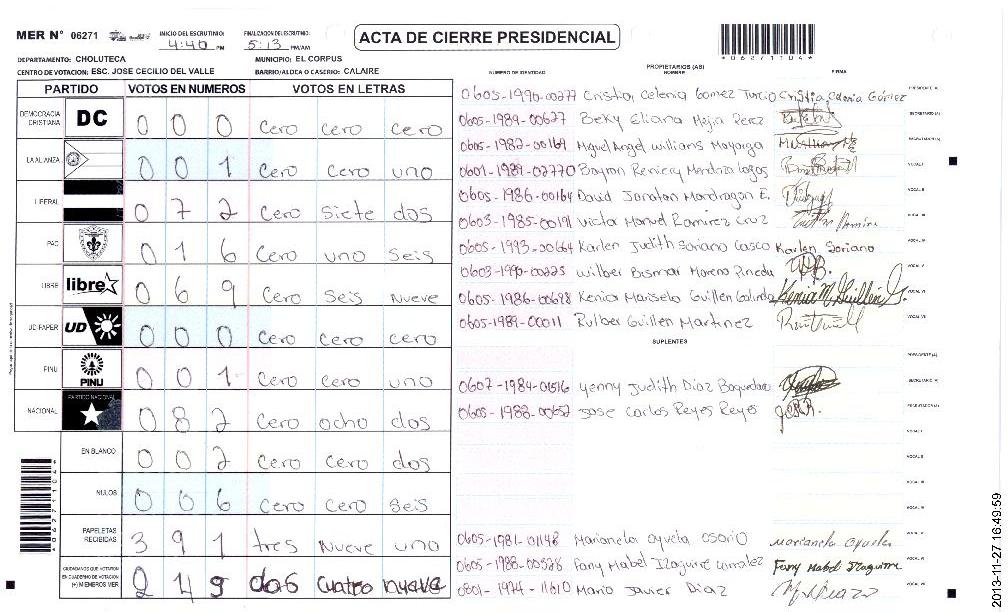 MER N° 06271
INICIO DEL ESCRUTINIO: 4:40 PM
FINALIZACION DEL ESCRUTINIO: 5:13 PM/AM
ACTA DE CIERRE PRESIDENCIAL
*06271104*
DEPARTAMENTO: CHOLUTECA
MUNICIPIO: EL CORPUS
CENTRO DE VOTACION: ESC. JOSE CECILIO DEL VALLE
BARRIO/ALDEA O CASERIO: CALAIRE
PARTIDO VOTOS EN NUMEROS VOTOS EN LETRAS
DEMOCRACIA CRISTIANA DC 0 0 0 cero cero cero
LA ALIANZA 0 0 1 cero cero uno
LIBERAL 0 7 2 cero siete dos
PAC 0 1 6 cero uno seis
LIBRE libre 0 6 9 cero seis nueve
UD-FAPER UD 0 0 0 cero cero cero
PINU PINU 0 0 1 cero cero uno
NACIONAL PARTIDO NACIONAL 0 8 2 cero ocho dos
EN BLANCO 0 0 2 cero cero dos
NULOS 0 0 6 cero cero seis
PAPELETAS RECIBIDAS 3 9 1 tres nueve uno
CIUDADANOS QUE VOTARON EN CUADERNO DE VOTACION (+) MIEMBROS MER 2 4 9 dos cuatro nueve
PROPIETARIOS (AS)
NUMERO DE IDENTIDAD NOMBRE FIRMA
0605-1990-00277 Cristia Celenia Gomez Turcio Cristia Celenia Gómez PRESIDENTE (A)
0605-1989-00627 Beky Eliana Mejia Perez SECRETARIO (A)
0605-1982-00169 Miguel Angel Williams Mayorga ESCRUTADOR (A)
0601-1989-02770 Bayron Reniery Mendoza Lagos VOCAL I
0605-1986-00164 David Jonatan Mondragon E. VOCAL II
0603-1985-00191 Victor Manuel Ramirez Cruz VOCAL III
0605-1993-00664 Karlen Judith Soriano Casco Karlen Soriano VOCAL IV
0603-1990-00225 Wilber Bismar Moreno Pineda VOCAL V
0605-1986-00628 Kenia Marisela Guillen Galindo Kenia M Guillén G. VOCAL VI
0605-1989-00011 Rulber Guillen Martinez VOCAL VII
SUPLENTES
PRESIDENTE (A)
0607-1984-01516 Yenny Judith Diaz SECRETARIO (A)
0605-1988-00652 Jose Carlos Reyes Reyes ESCRUTADOR (A)
VOCAL I
VOCAL II
VOCAL III
VOCAL IV
0605-1981-01148 Marianela Ayuela Osorio Marianela Ayuela VOCAL V
0605-1988-00528 Fany Mabel Izaguirre Gonzalez Fany Mabel Izaguirre VOCAL VI
0801-1974-11610 Mario Javier Diaz VOCAL VII
*06271104*
2013-11-27 16:49:59